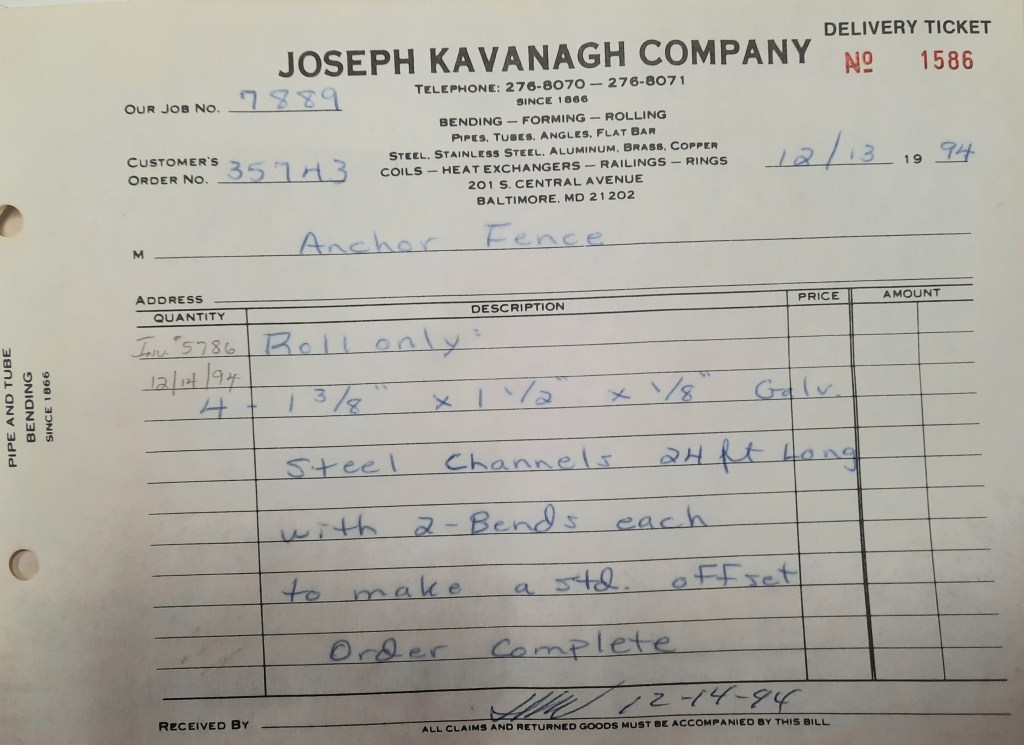 DELIVERY TICKET
JOSEPH KAVANAGH COMPANY
Nº 1586
TELEPHONE: 276-8070 — 276-8071
SINCE 1866
OUR JOB NO. 7889
BENDING — FORMING — ROLLING
PIPES, TUBES, ANGLES, FLAT BAR
STEEL, STAINLESS STEEL, ALUMINUM, BRASS, COPPER
CUSTOMER'S
ORDER NO. 35743
COILS — HEAT EXCHANGERS — RAILINGS — RINGS
12/13 19 94
201 S. CENTRAL AVENUE
BALTIMORE, MD 21202
M Anchor Fence
ADDRESS
QUANTITY DESCRIPTION PRICE AMOUNT
Inv. #5786 Roll only:
12/14/94
4 - 1 3/8" x 1 1/2" x 1/8" Galv.
Steel Channels 24 ft Long
with 2-Bends each
to make a std. offset
Order Complete
12-14-94
RECEIVED BY
ALL CLAIMS AND RETURNED GOODS MUST BE ACCOMPANIED BY THIS BILL
PIPE AND TUBE
BENDING
SINCE 1866